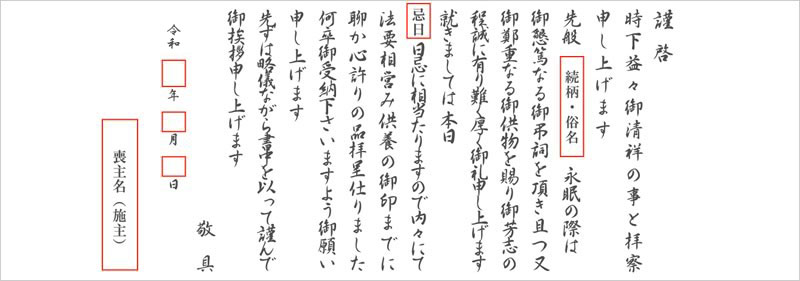 謹啓
時下益々御清祥の事と拝察
申し上げます
先般 続柄・俗名 永眠の際は
御懇篤なる御弔詞を頂き且つ又
御鄭重なる御供物を賜り御芳志の
程誠に有り難く厚く御礼申し上げます
就きましては本日
忌日 日忌に相当たりますので内々にて
法要相営み供養の御印までに
聊か心許りの品拝呈仕りました
何卒御受納下さいますよう御願い
申し上げます
先ずは略儀ながら書中を以って謹んで
御挨拶申し上げます
敬具
令和 年 月 日
喪主名（施主）